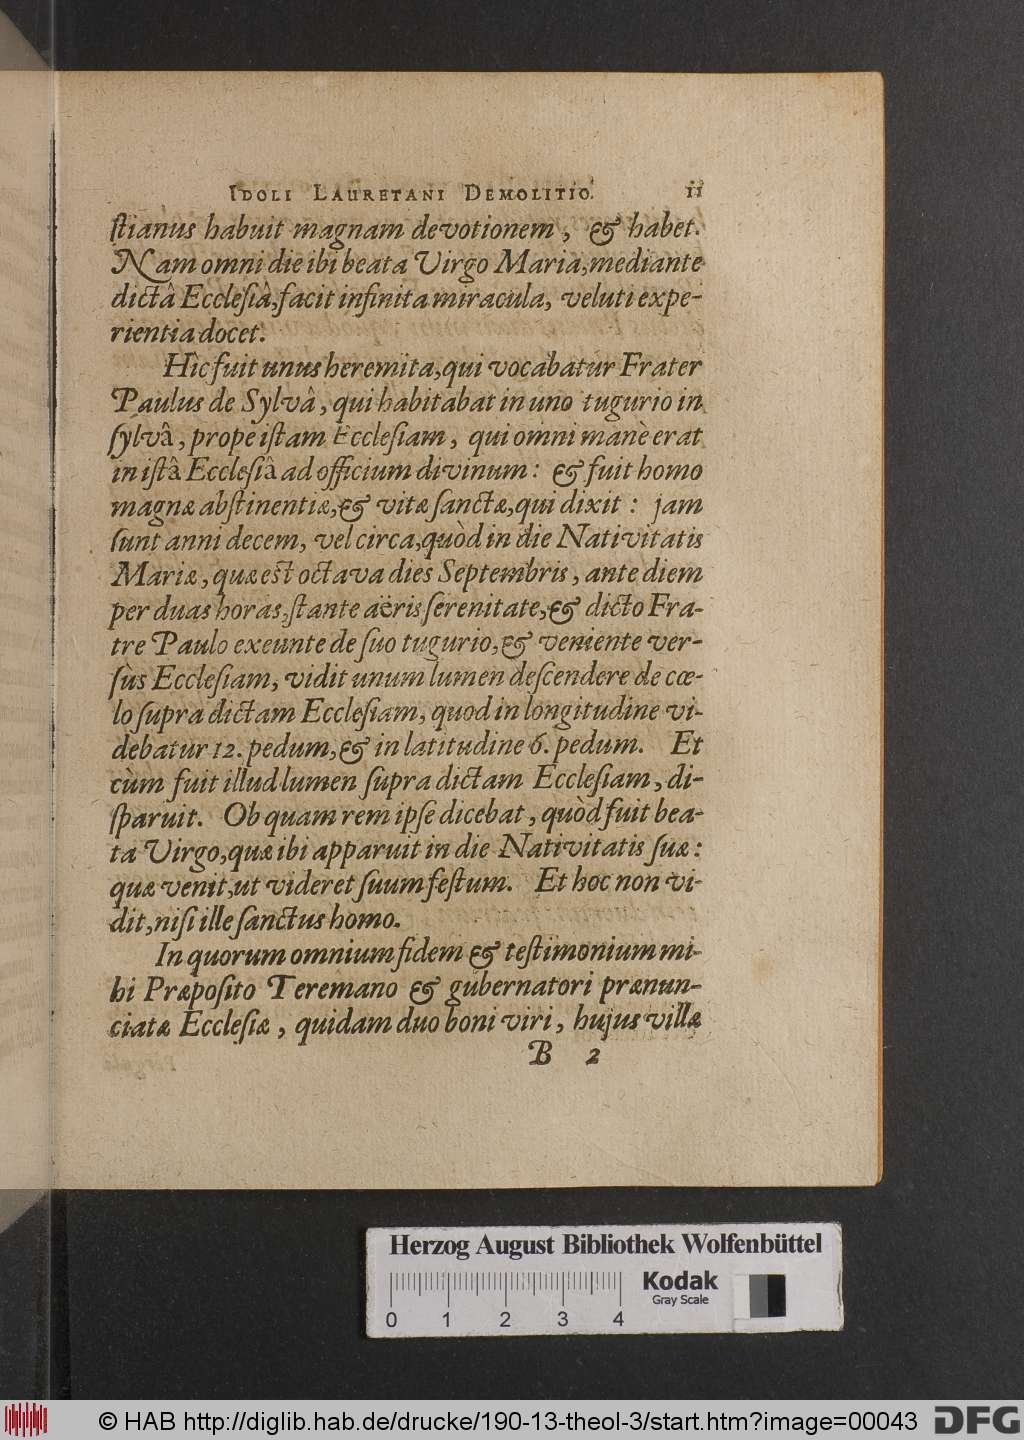 IDOLI LAURETANI DEMOLITIO. 11
stianus habuit magnam devotionem, & habet.
Nam omni die ibi beata Virgo Maria, mediante
dictâ Ecclesiâ, facit infinita miracula, veluti expe-
rientia docet.
Hìc fuit unus heremita, qui vocabatur Frater
Paulus de Sylvâ, qui habitabat in uno tugurio in
sylvâ, prope istam Ecclesiam, qui omni manè erat
in istâ Ecclesiâ ad officium divinum: & fuit homo
magnæ abstinentiæ, & vitæ sanctæ, qui dixit: jam
sunt anni decem, vel circa, quòd in die Nativitatis
Mariæ, quæ est octava dies Septembris, ante diem
per duas horas, stante aëris serenitate, & dicto Fra-
tre Paulo exeunte de suo tugurio, & veniente ver-
sùs Ecclesiam, vidit unum lumen descendere de cœ-
lo supra dictam Ecclesiam, quod in longitudine vi-
debatur 12. pedum, & in latitudine 6. pedum. Et
cùm fuit illud lumen supra dictam Ecclesiam, di-
sparuit. Ob quam rem ipse dicebat, quòd fuit bea-
ta Virgo, quæ ibi apparuit in die Nativitatis suæ:
quæ venit, ut videret suum festum. Et hoc non vi-
dit, nisi ille sanctus homo.
In quorum omnium fidem & testimonium mi-
hi Præposito Teremano & gubernatori prænun-
ciatæ Ecclesiæ, quidam duo boni viri, hujus villæ
B 2
Herzog August Bibliothek Wolfenbüttel
Kodak
Gray Scale
0 1 2 3 4
© HAB http://diglib.hab.de/drucke/190-13-theol-3/start.htm?image=00043 DFG